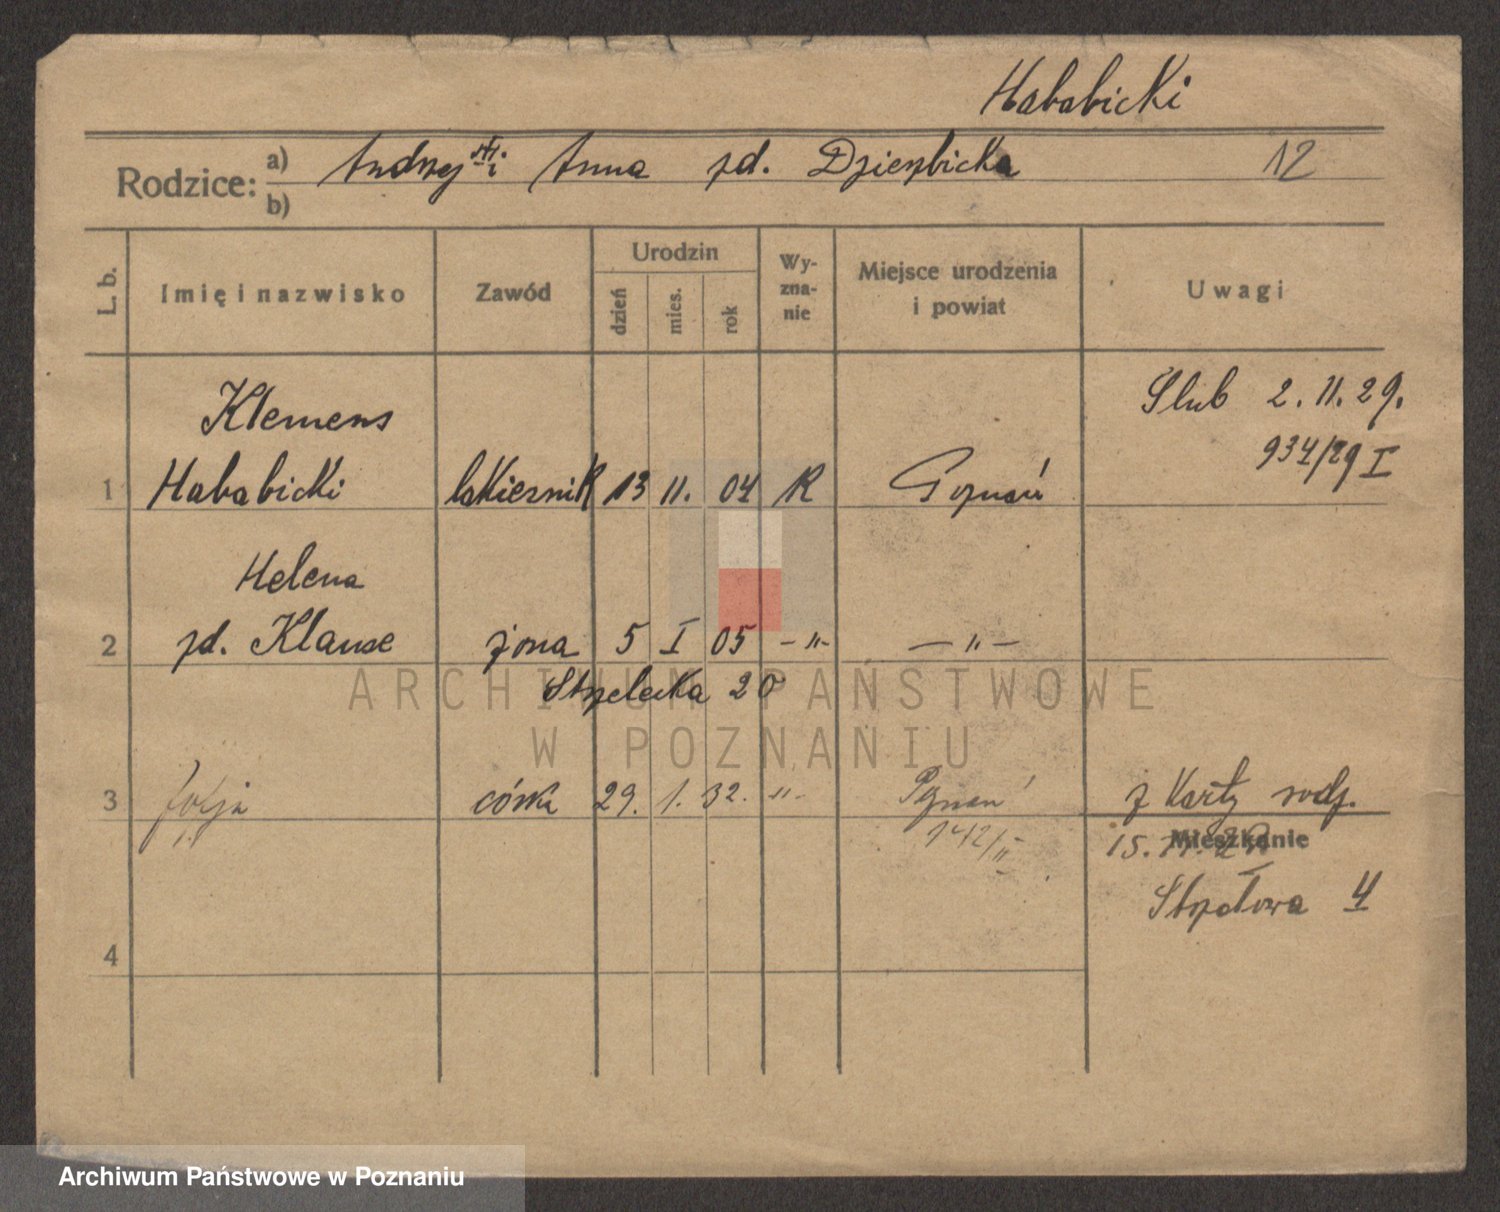 Hababicki
Rodzice: a) Andrzej i Anna zd. Dzierzbicka 12
b)
L. b. Imię i nazwisko Zawód Urodzin dzień mies. rok Wyzna-nie Miejsce urodzenia i powiat Uwagi
Klemens Ślub 2. 11. 29.
934/29 I
1 Hababicki lakiernik 13 11. 04 R Poznań
Helena
2 zd. Klause żona 5 I 05 -"- -"-
Strzelecka 20
3 Zofja córka 29. 1. 32. -"- Poznań z karty rodz.
142/II 15. 11. 29 Mieszkanie
Strzałowa 4
4
ARCHIWUM PAŃSTWOWE
W POZNANIU
Archiwum Państwowe w Poznaniu